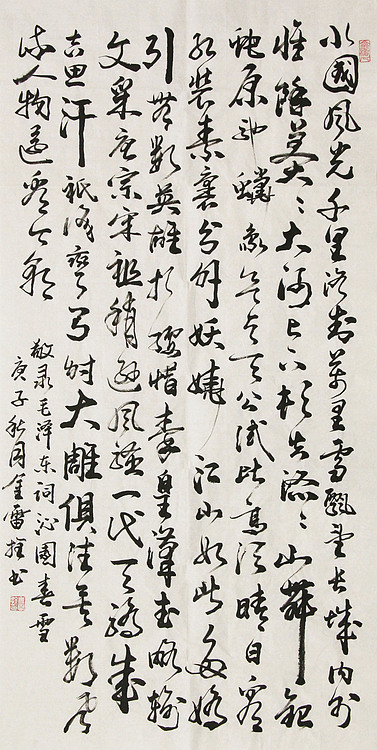 北國風光千里冰封萬里雪飄望長城内外
惟餘莽々大河上下頓失滔々山舞銀
蛇原馳蠟象欲與天公試比高須晴日看
紅裝素裹分外妖嬈江山如此多嬌
引無數英雄折腰惜秦皇漢武略輸
文采唐宗宋祖稍遜風騷一代天驕成
吉思汗祇識彎弓射大雕俱往矣數風
流人物還看今朝
敬录毛泽东词沁園春雪
庚子秋周金雷书